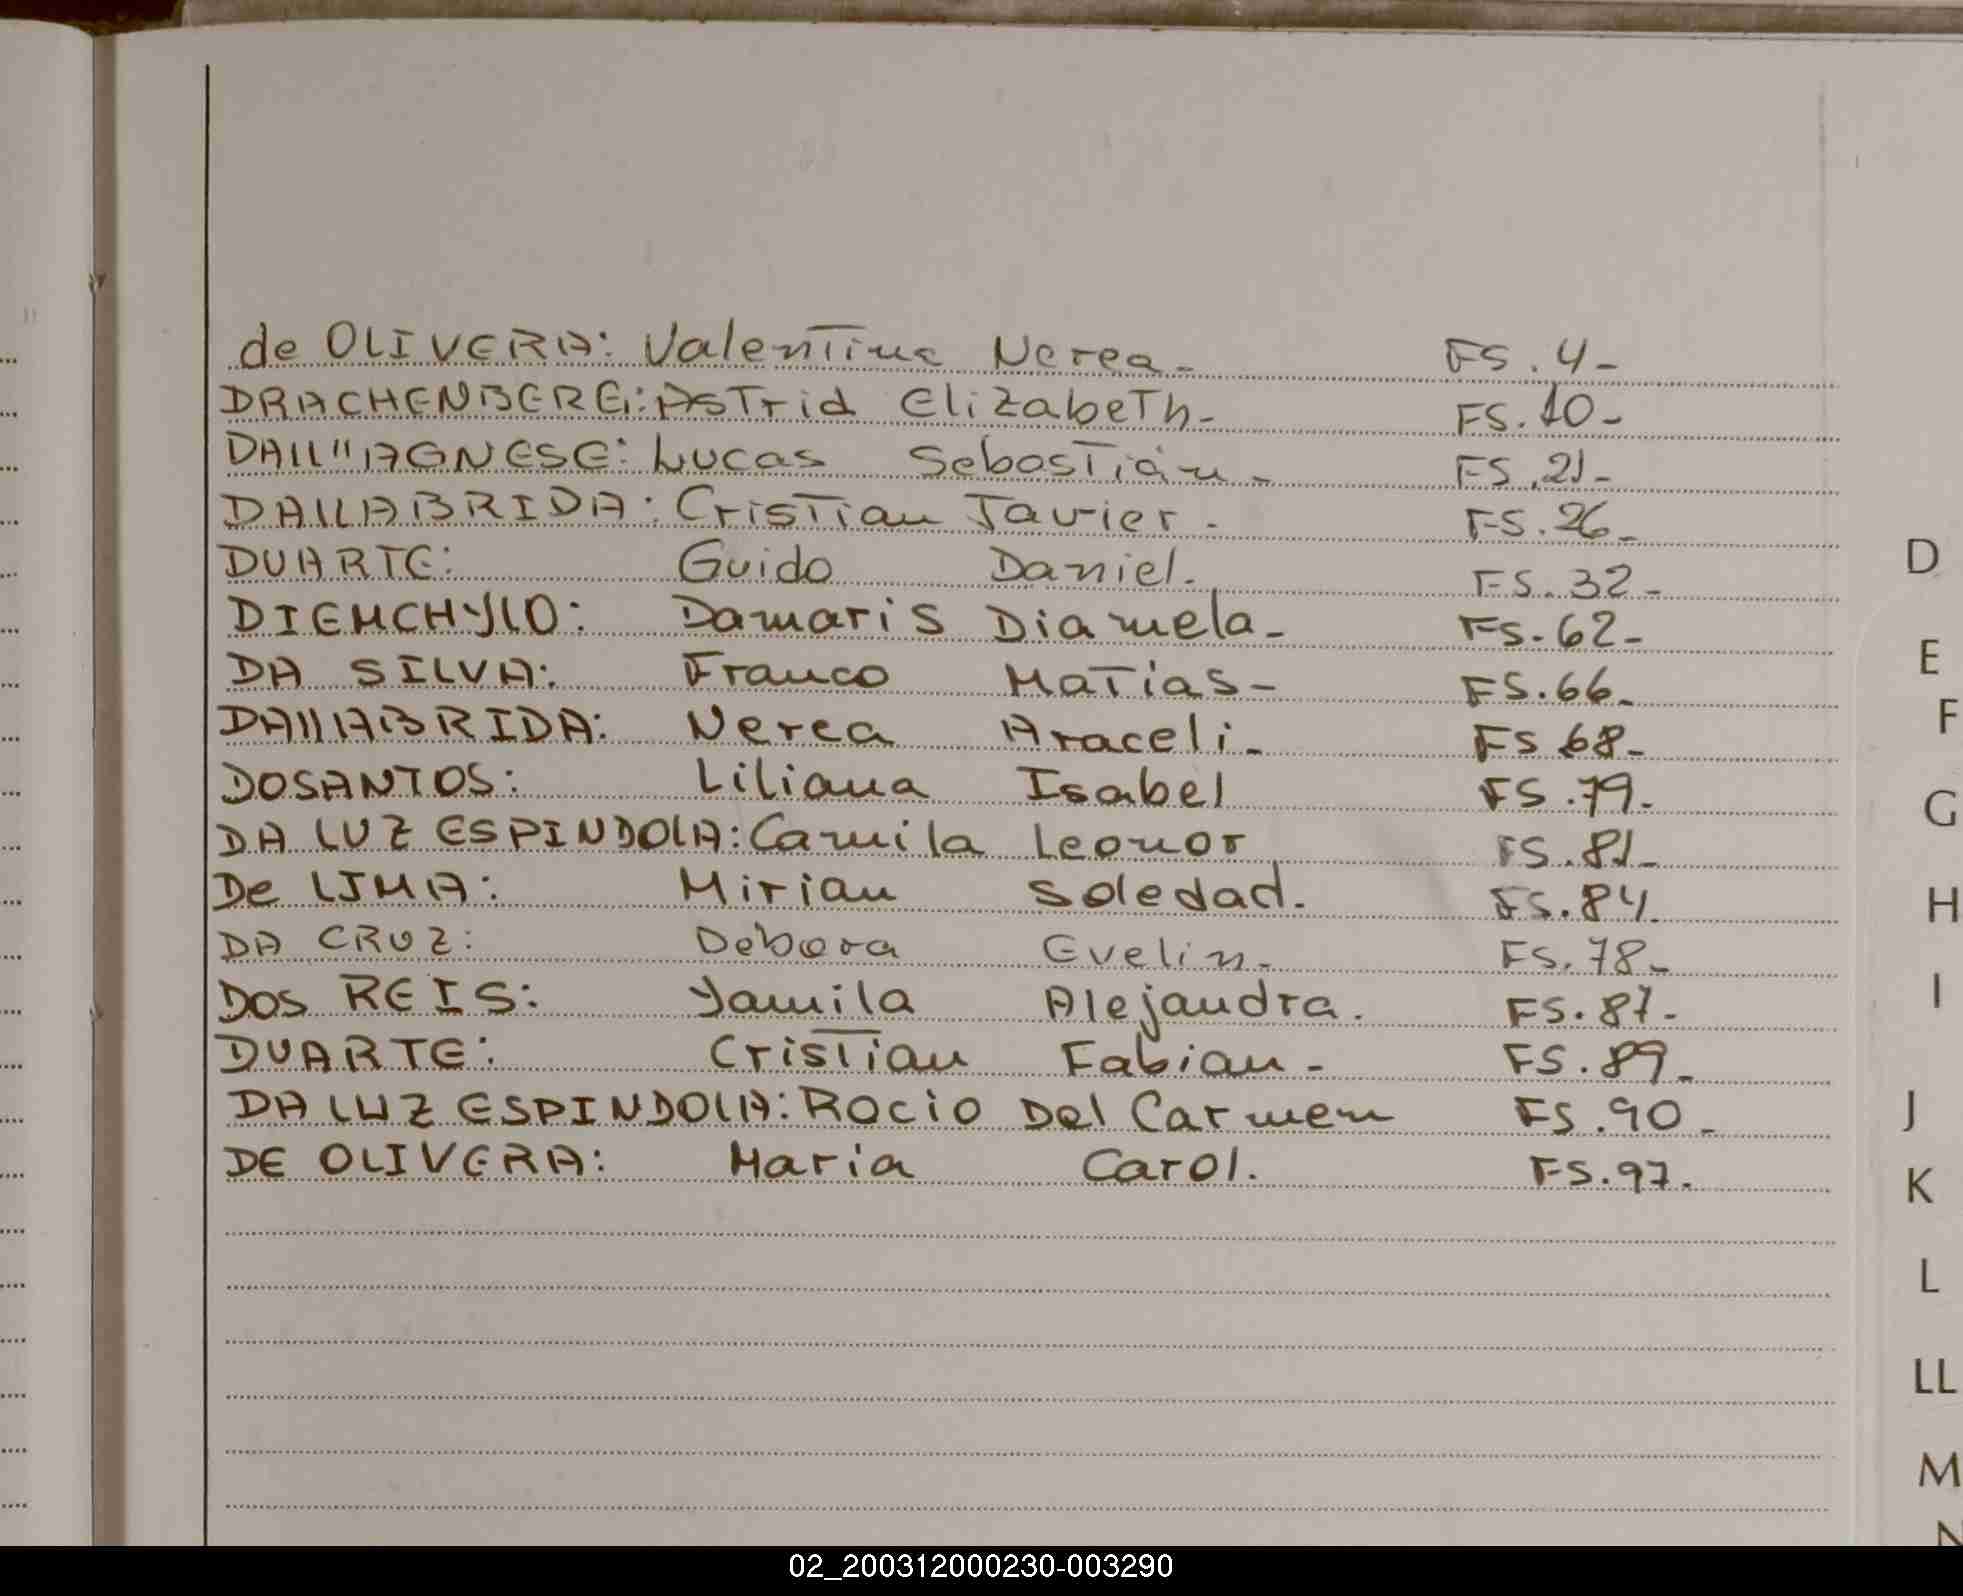 de OLIVERA: Valentina Nerea- FS. 4-
DRACHENBERG: Astrid Elizabeth- FS. 10-
DAll"AGNESE: Lucas Sebastián- FS. 21-
DAllABRIDA: Cristian Javier. FS. 26-
DUARTE: Guido Daniel. FS. 32-
DIEMCHYlO: Damaris Diamela- FS. 62-
DA SILVA: Franco Matias- FS. 66-
DAllABRIDA: Nerea Araceli- FS 68-
DOSANTOS: Liliana Isabel FS. 79.
DA LUZ ESPINDOlA: Camila Leonor FS. 81-
De LIMA: Mirian Soledad. FS. 84.
DA CRUZ: Debora Evelin- FS. 78-
DOS REIS: Yamila Alejandra. FS. 87-
DUARTE: Cristian Fabian- FS. 89-
DA LUZ ESPINDOlA: Rocio Del Carmen FS. 90-
DE OLIVERA: Maria Carol. FS. 97.
D
E
F
G
H
I
J
K
L
LL
M
N
02_200312000230-003290